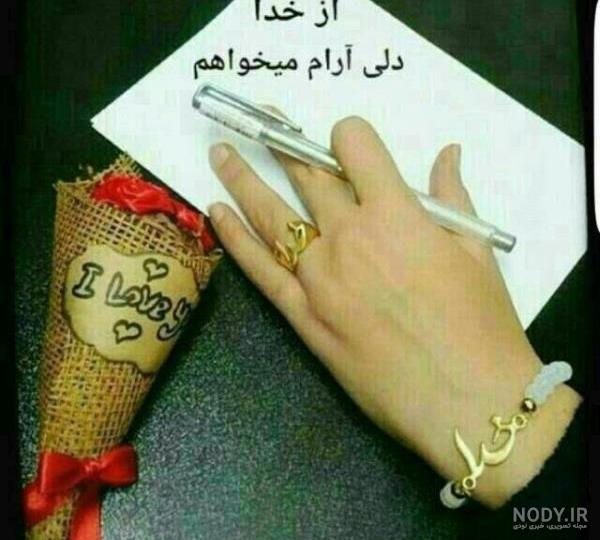 از خدا
دلی آرام میخواهم
I LOVE
خدا
NODY.IR
مجله تصویری، خبری نودی